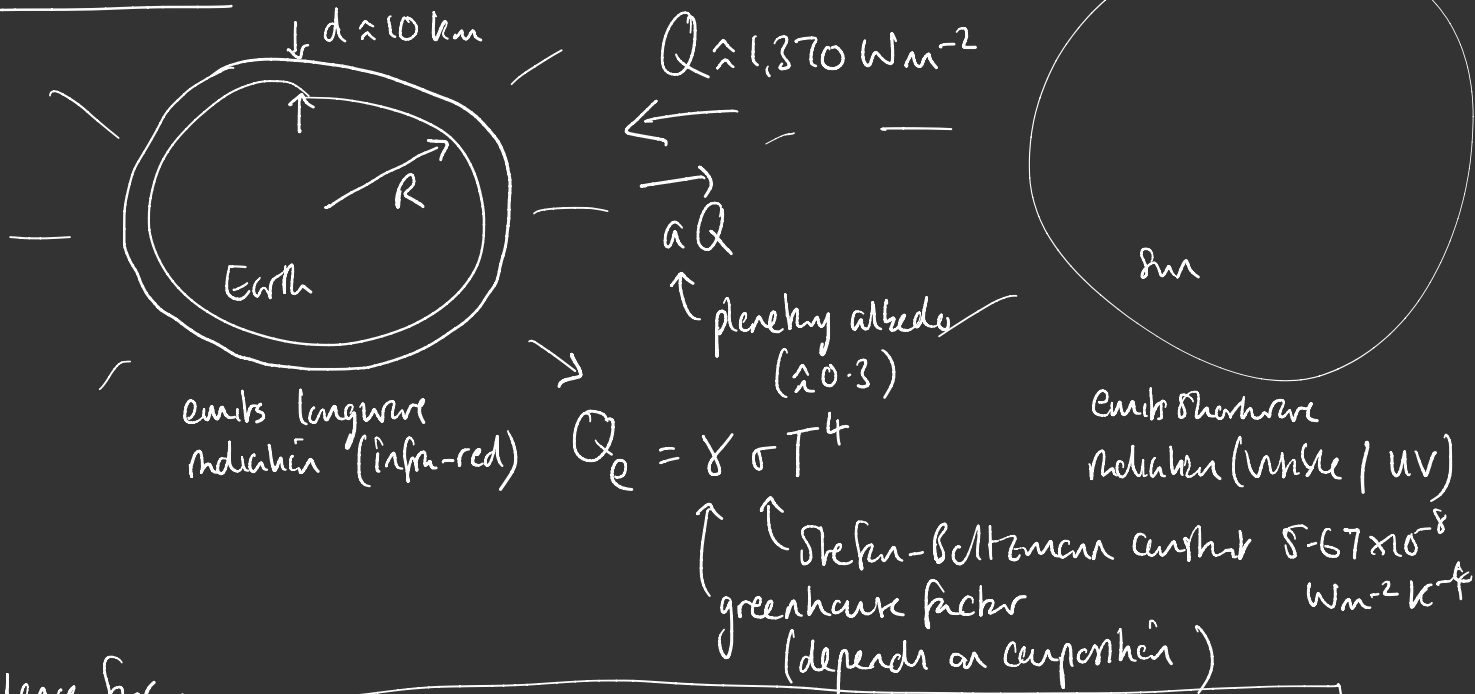 d ≈ 10 km
Q ≈ 1,370 Wm⁻²
R
aQ
Earth
Sun
planetary albedo
(≈ 0.3)
emits longwave
radiation (infra-red)
Qₑ = γσT⁴
emits shortwave
radiation (visible / UV)
Stefan-Boltzmann constant 5.67×10⁻⁸
Wm⁻²K⁻⁴
greenhouse factor
(depends on composition)